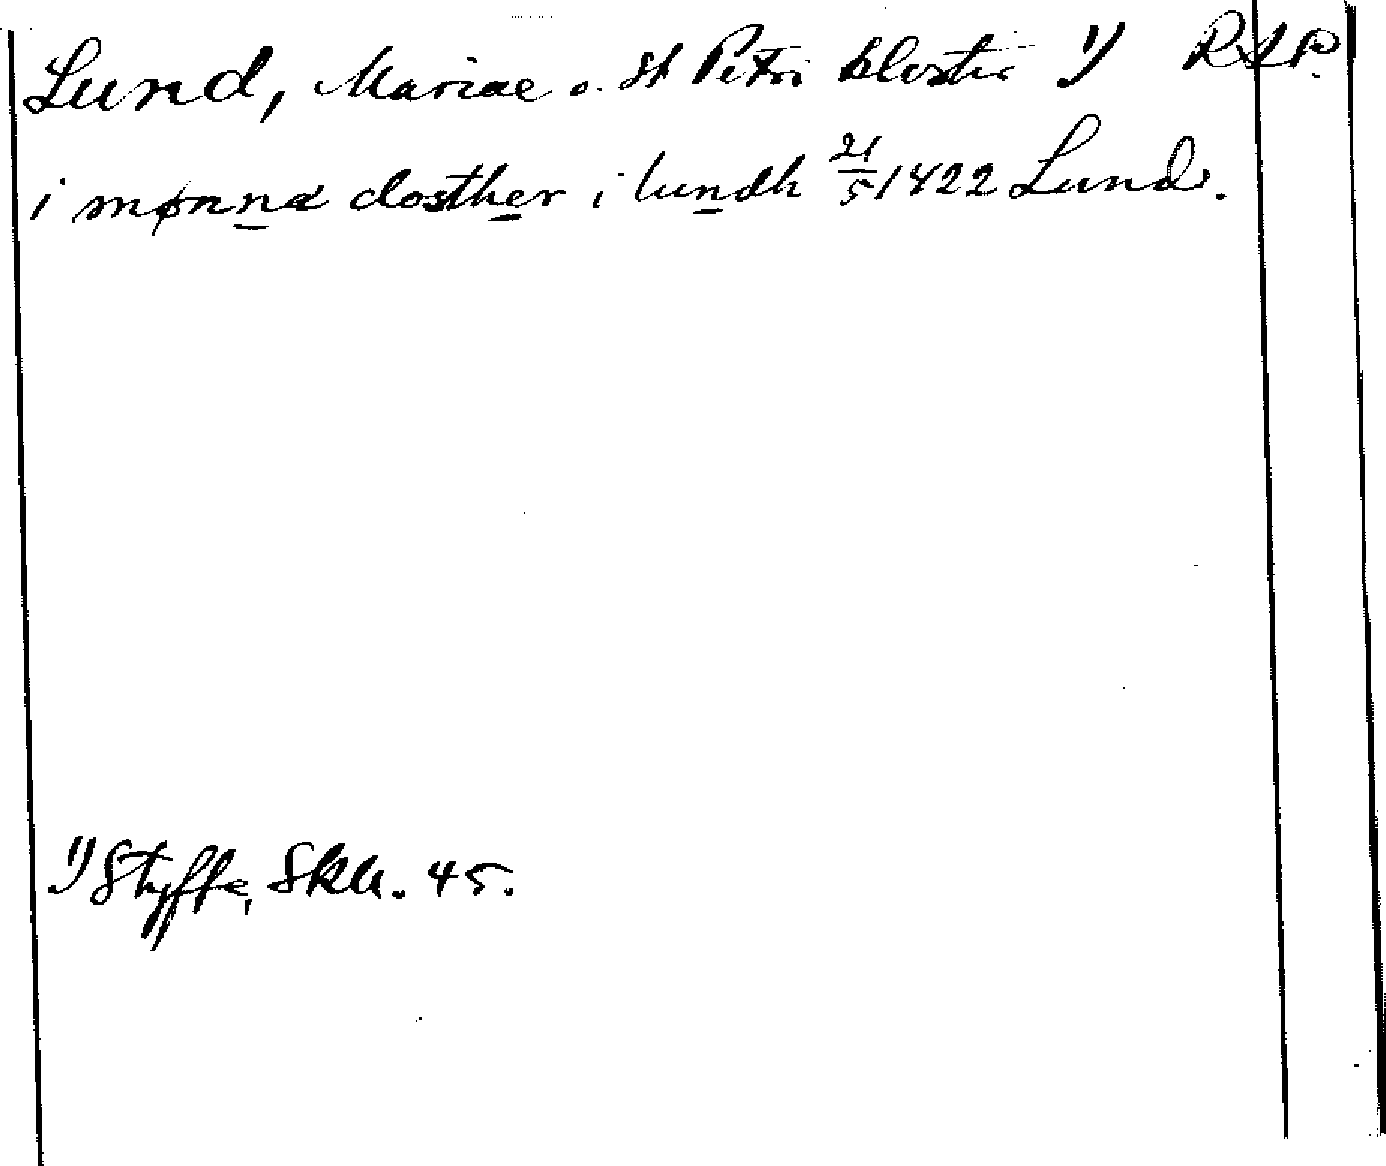 Lund, Mariae o. St Petri kloster 1) RAP.
i mønnæ closther i lundh 21/5 1422 Lund.
1) Styffe, SkU. 45.